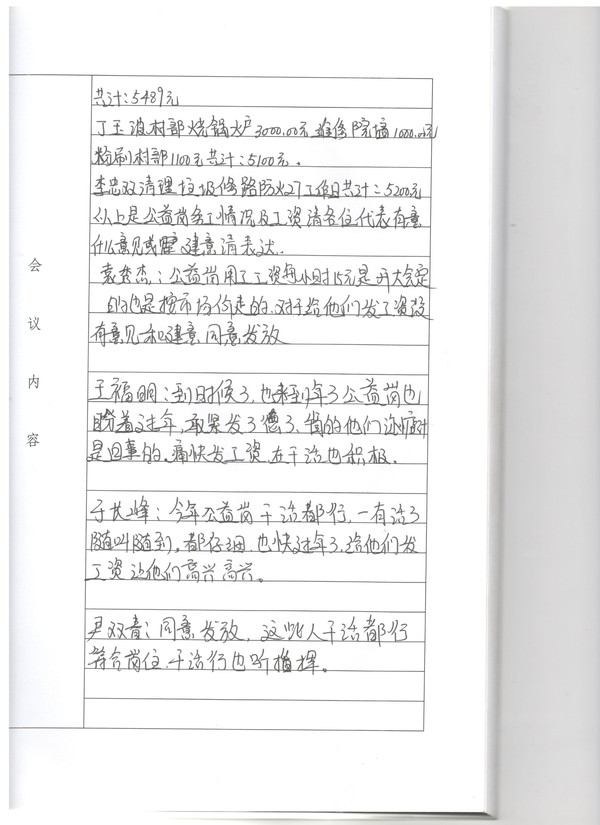 共计:5489元
丁玉波村部烧锅炉3000.00元维修院墙1000.00元
粉刷村部1100元共计:5100元.
李忠双清理垃圾修路防火27工作日共计:5200元
以上是公益岗务工情况及工资请各位代表有意
什么意见或 建意请表达.
袁 杰:公益岗用工工资每小时15元是开大会定
的也是按市场价走的.对于给他们发工资没
有意见和建意同意发放
会议内容
王福明:到时候了,也来到年了公益岗也
盼着过年,取紧发了得了,省的他们
是回事的.痛快发工资.在干活也积极.
于长峰:今年公益岗干活都行,一有活了
随叫随到,都存 ,也快过年了,给他们发
工资让他们高兴高兴。
尹双青:同意发放,这些人干活都行
符合岗位,干活行也听指挥。